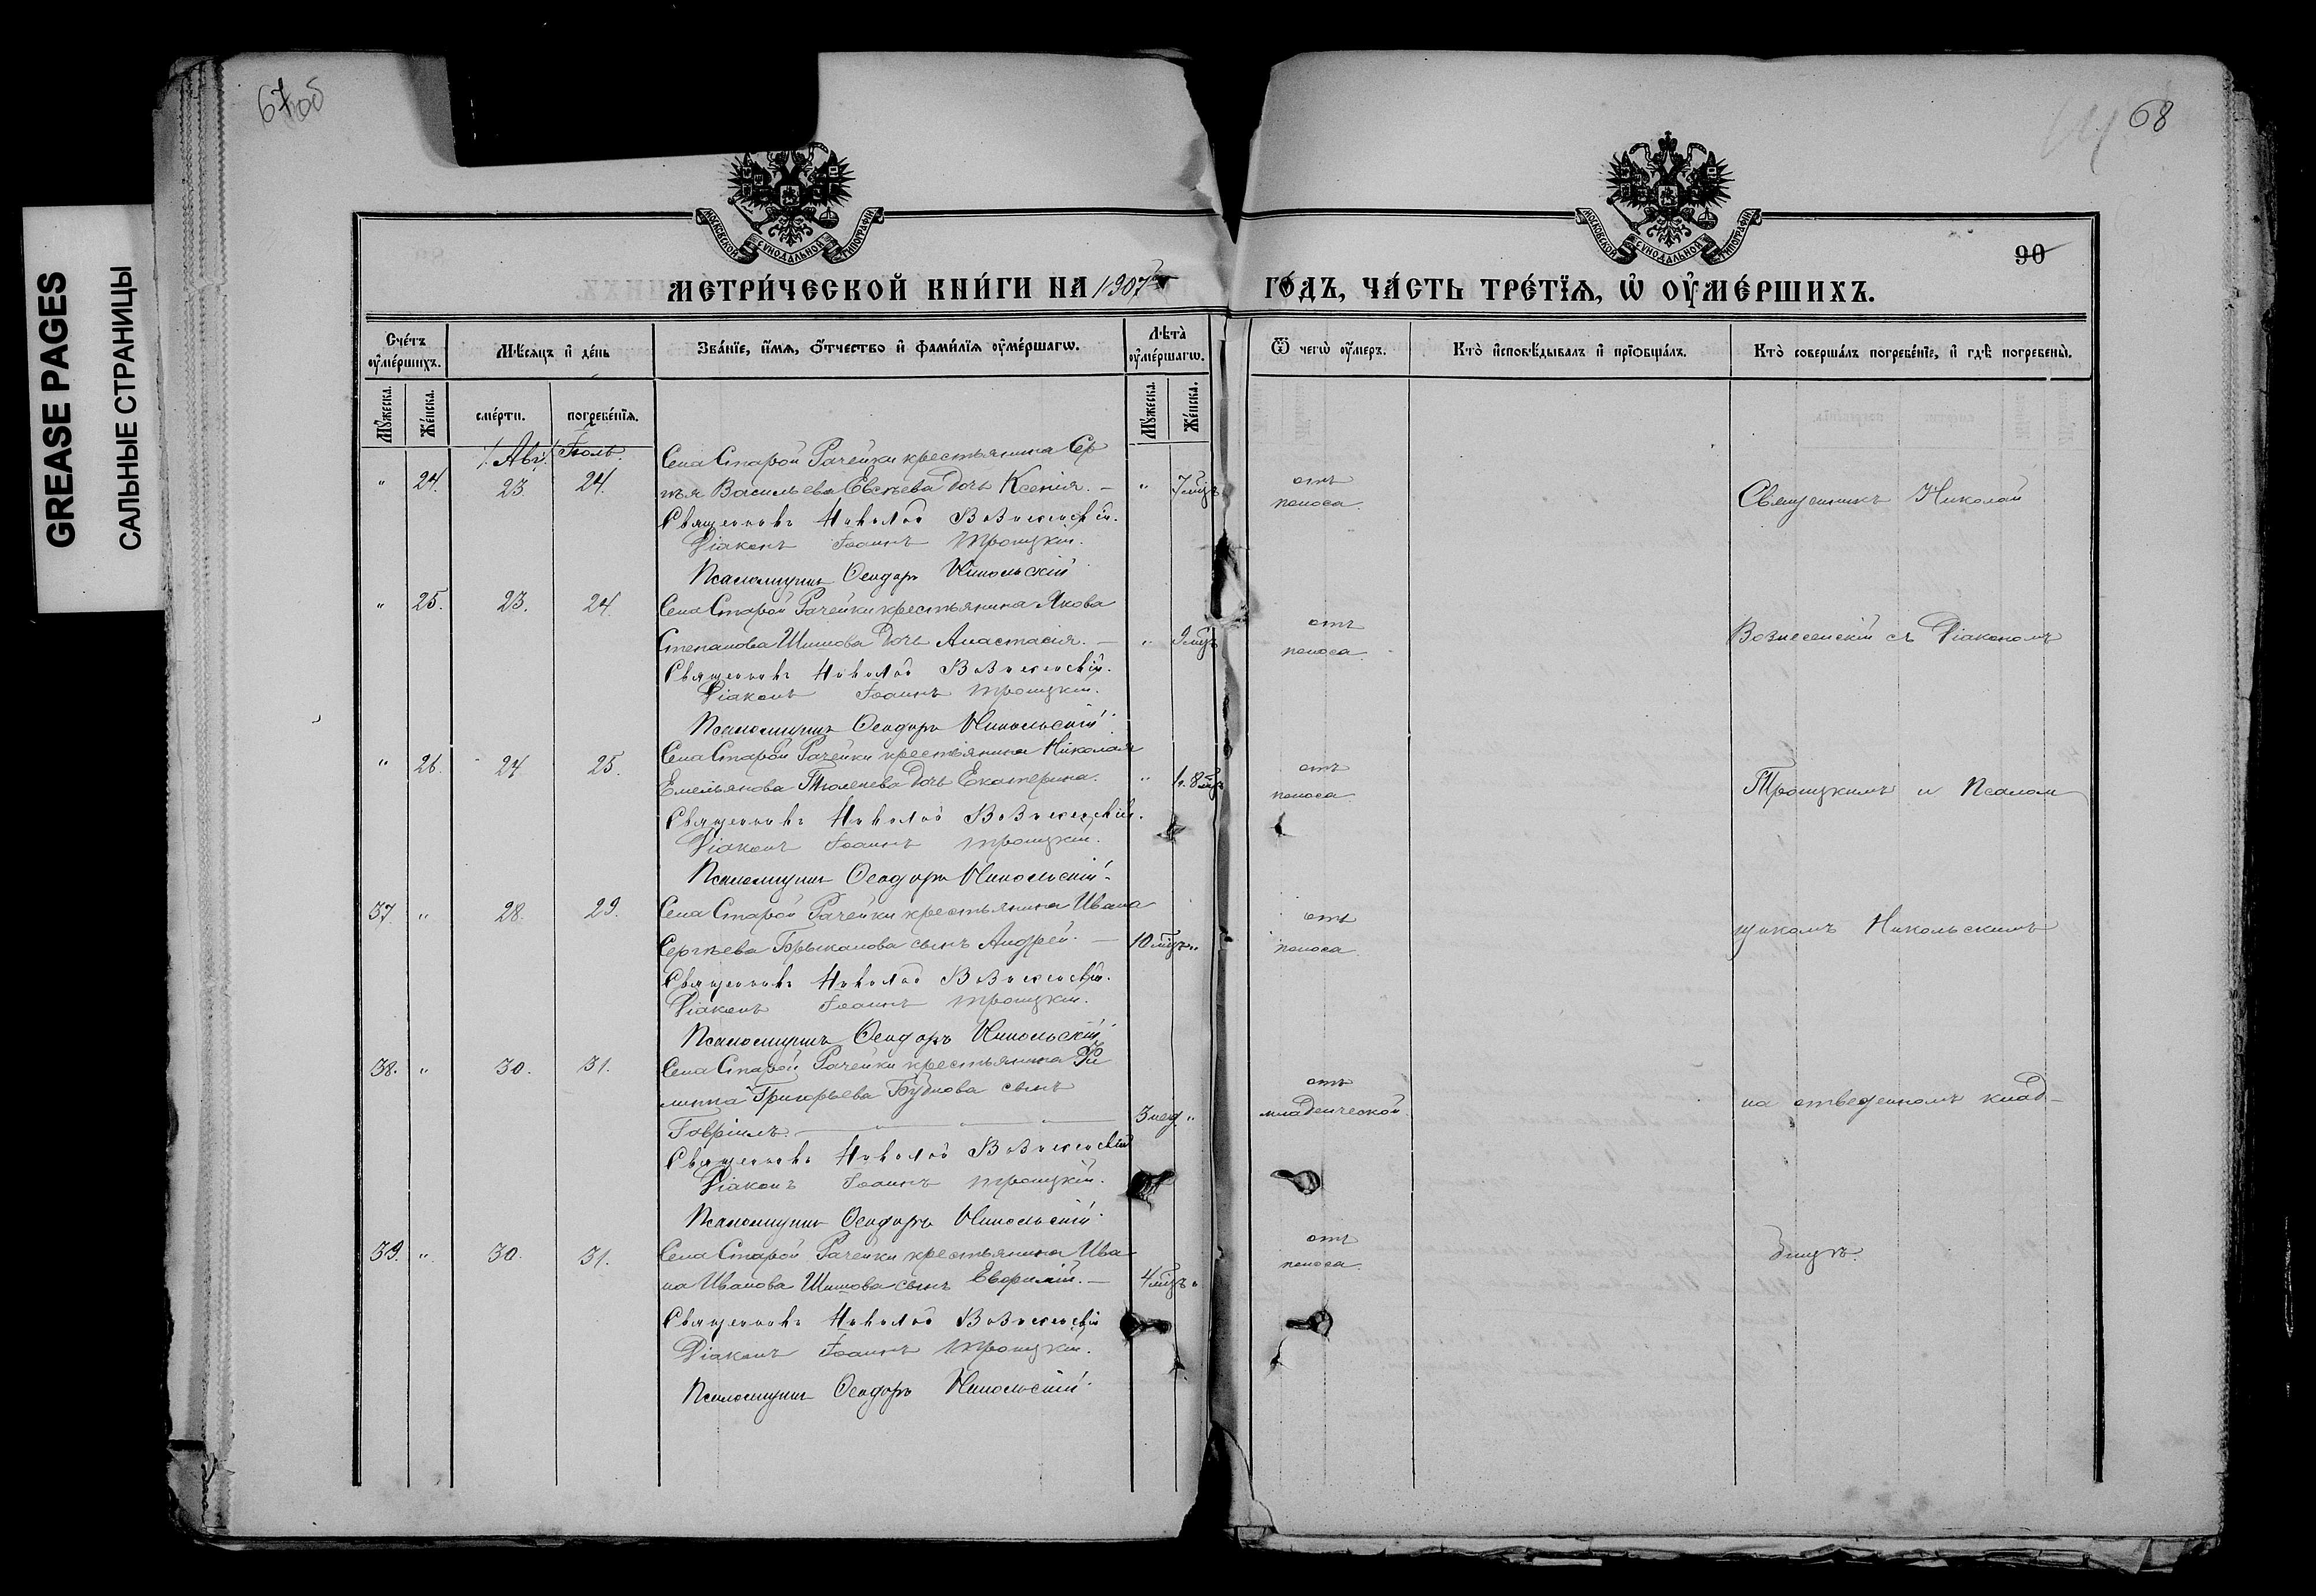 GREASE PAGES
САЛЬНЫЕ СТРАНИЦЫ
67об
68
МОСКОВСКОЙ СѴНОДАЛЬНОЙ ТИПОГРАФІИ
МОСКОВСКОЙ СѴНОДАЛЬНОЙ ТИПОГРАФІИ
90
МЕТРИ́ЧЕСКОЙ КНИ́ГИ НА 1907 ГО́ДЪ, ЧА́СТЬ ТРЕ́ТЇѦ, Ѡ҆ ОУ҆МЕ́РШИХЪ.
Сче́тъ оу҆ме́ршихъ.
Мѣ́сѧцъ и҆ де́нь
Зва́нїе, и҆́мѧ, ѻ҆́тчество и҆ фами́лїѧ оу҆ме́ршагѡ.
Лѣ́та оу҆ме́ршагѡ.
Ѿ чегѡ̀ оу҆́меръ.
Кто̀ и҆сповѣ́дывалъ и҆ прїѡбща́лъ.
Кто̀ соверша́лъ погребе́нїе, и҆ гдѣ̀ погребены̀.
Мꙋ́жеска.
Же́нска.
сме́рти.
погребе́нїѧ.
Мꙋ́жеска.
Же́нска.
Авг. Іюль.
Села Старой Рачейки крестьянина Сер
" 24. 23. 24. гѣя Васильева Евсѣева дочь Ксенія. — " 7 мѣц. отъ поноса. Священникъ Николай
Священникъ Николай Вознесенскій.
Діаконъ Іоаннъ Троицкій.
Псаломщикъ Ѳеодоръ Никольскій
" 25. 23. 24. Села Старой Рачейки крестьянина Якова
Степанова Шишова дочь Анастасія. — " 9 мѣц. отъ поноса. Вознесенскій съ Діакономъ
Священникъ Николай Вознесенскій.
Діаконъ Іоаннъ Троицкій.
Псаломщикъ Ѳеодоръ Никольскій
" 26. 24. 25. Села Старой Рачейки крестьянина Николая
Емельянова Тюленева дочь Екатерина. " 1 г. 8 мѣц. отъ поноса. Троицкимъ и Псалом
Священникъ Николай Вознесенскій.
Діаконъ Іоаннъ Троицкій.
Псаломщикъ Ѳеодоръ Никольскій
37 " 28. 29. Села Старой Рачейки крестьянина Ивана
Сергѣева сынъ Андрей. — 10 мѣц. " отъ поноса. щикомъ Никольскимъ
Священникъ Николай Вознесенскій.
Діаконъ Іоаннъ Троицкій.
Псаломщикъ Ѳеодоръ Никольскій
38. " 30. 31. Села Старой Рачейки крестьянина Фи
липпа Григорьева сынъ
Гавріилъ. — 3 нед. " отъ младенческой. на отведенномъ клад-
Священникъ Николай Вознесенскій
Діаконъ Іоаннъ Троицкій.
Псаломщикъ Ѳеодоръ Никольскій
39. " 30. 31. Села Старой Рачейки крестьянина Ива
на Иванова Шишова сынъ Евфимій. — 4 мѣц. " отъ поноса. бищѣ.
Священникъ Николай Вознесенскій
Діаконъ Іоаннъ Троицкій.
Псаломщикъ Ѳеодоръ Никольскій